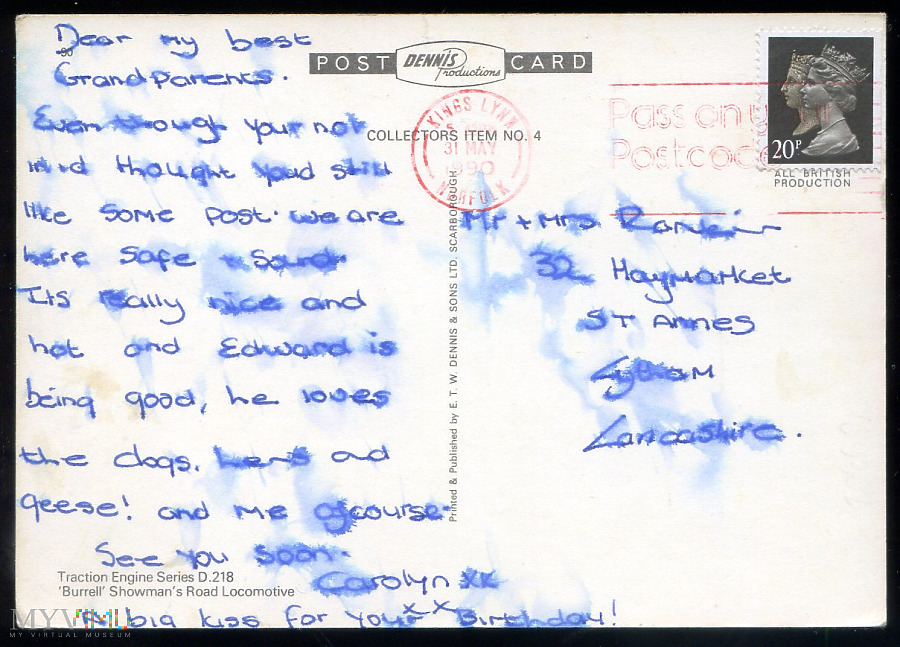 Dear my best
Grandparents.
Even though your not
in I thought you'd still
like some post. we are
here safe + sound.
Its really nice and
hot and Edward is
being good, he loves
the dogs, hens and
geese! and me ofcourse.
See you soon.
Carolyn xx
x x
A big kiss for your Birthday!
90
POST DENNIS Productions CARD
COLLECTORS ITEM NO. 4
KINGS LYNN
31 MAY
1990
NORFOLK
Pass on y
Postcode
20P
ALL BRITISH
PRODUCTION
Mr + Mrs
32 Haymarket
ST Annes
Lytham
Lancashire.
Printed & Published by E. T. W. DENNIS & SONS LTD. SCARBOROUGH
Traction Engine Series D.218
'Burrell' Showman's Road Locomotive
MYVIMU
MY VIRTUAL MUSEUM